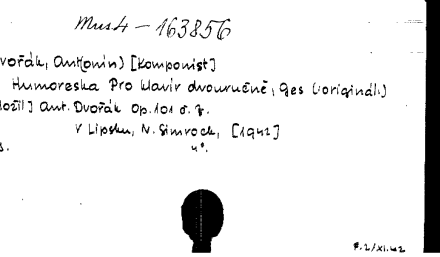 Mus4 - 163856
vořák, Ant(onín) [Komponist]
Humoreska Pro klavír dvouručně, Ges (:originál:)
ložil] Ant. Dvořák Op. 101 č. 7.
V Lipsku, N. Simrock, [1942]
s. 4°.
F. 2/XI. 42